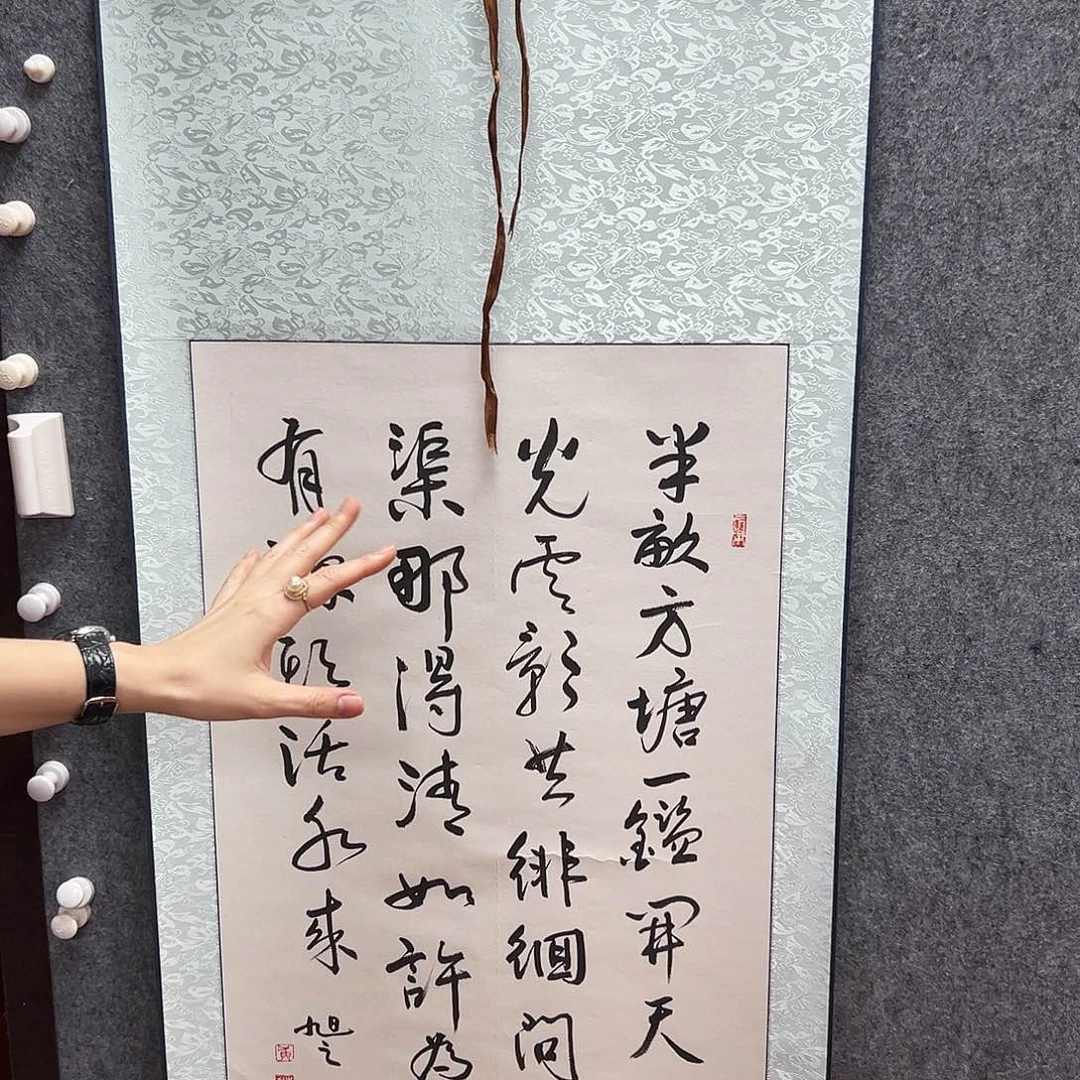 半畝方塘一鑑開天
光雲影共徘徊問
渠那得清如許為
有源頭活水來
旭之